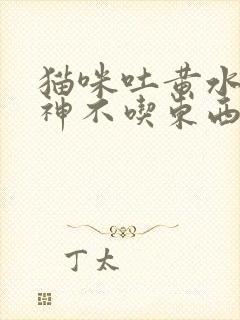 猫咪吐黄水
神不喫东西
丁太